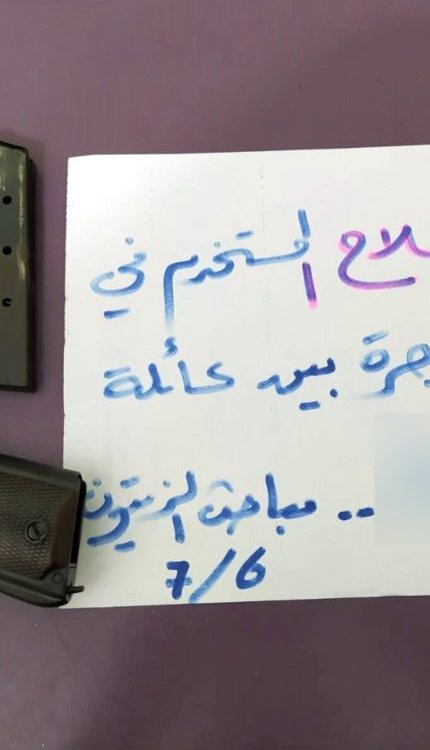 ـلاح المستخدم في
ـجرة بين عائلة
.. مباحث الزيتون
7/6